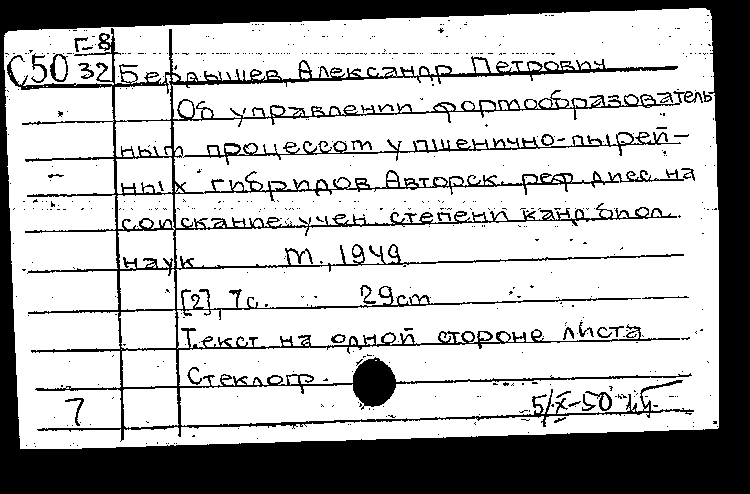 Г-8
С50 32 Бердышев, Александр Петрович
Об управлении формообразователь
ным процессом у пшенично-пырей-
ных гибридов. Авторск. реф. дисс. на
соискание учен. степени канд. биол.
наук М., 1949
[2], 7 с. 29 cm
Текст на одной стороне листа
Стеклогр.
7 5/X-50